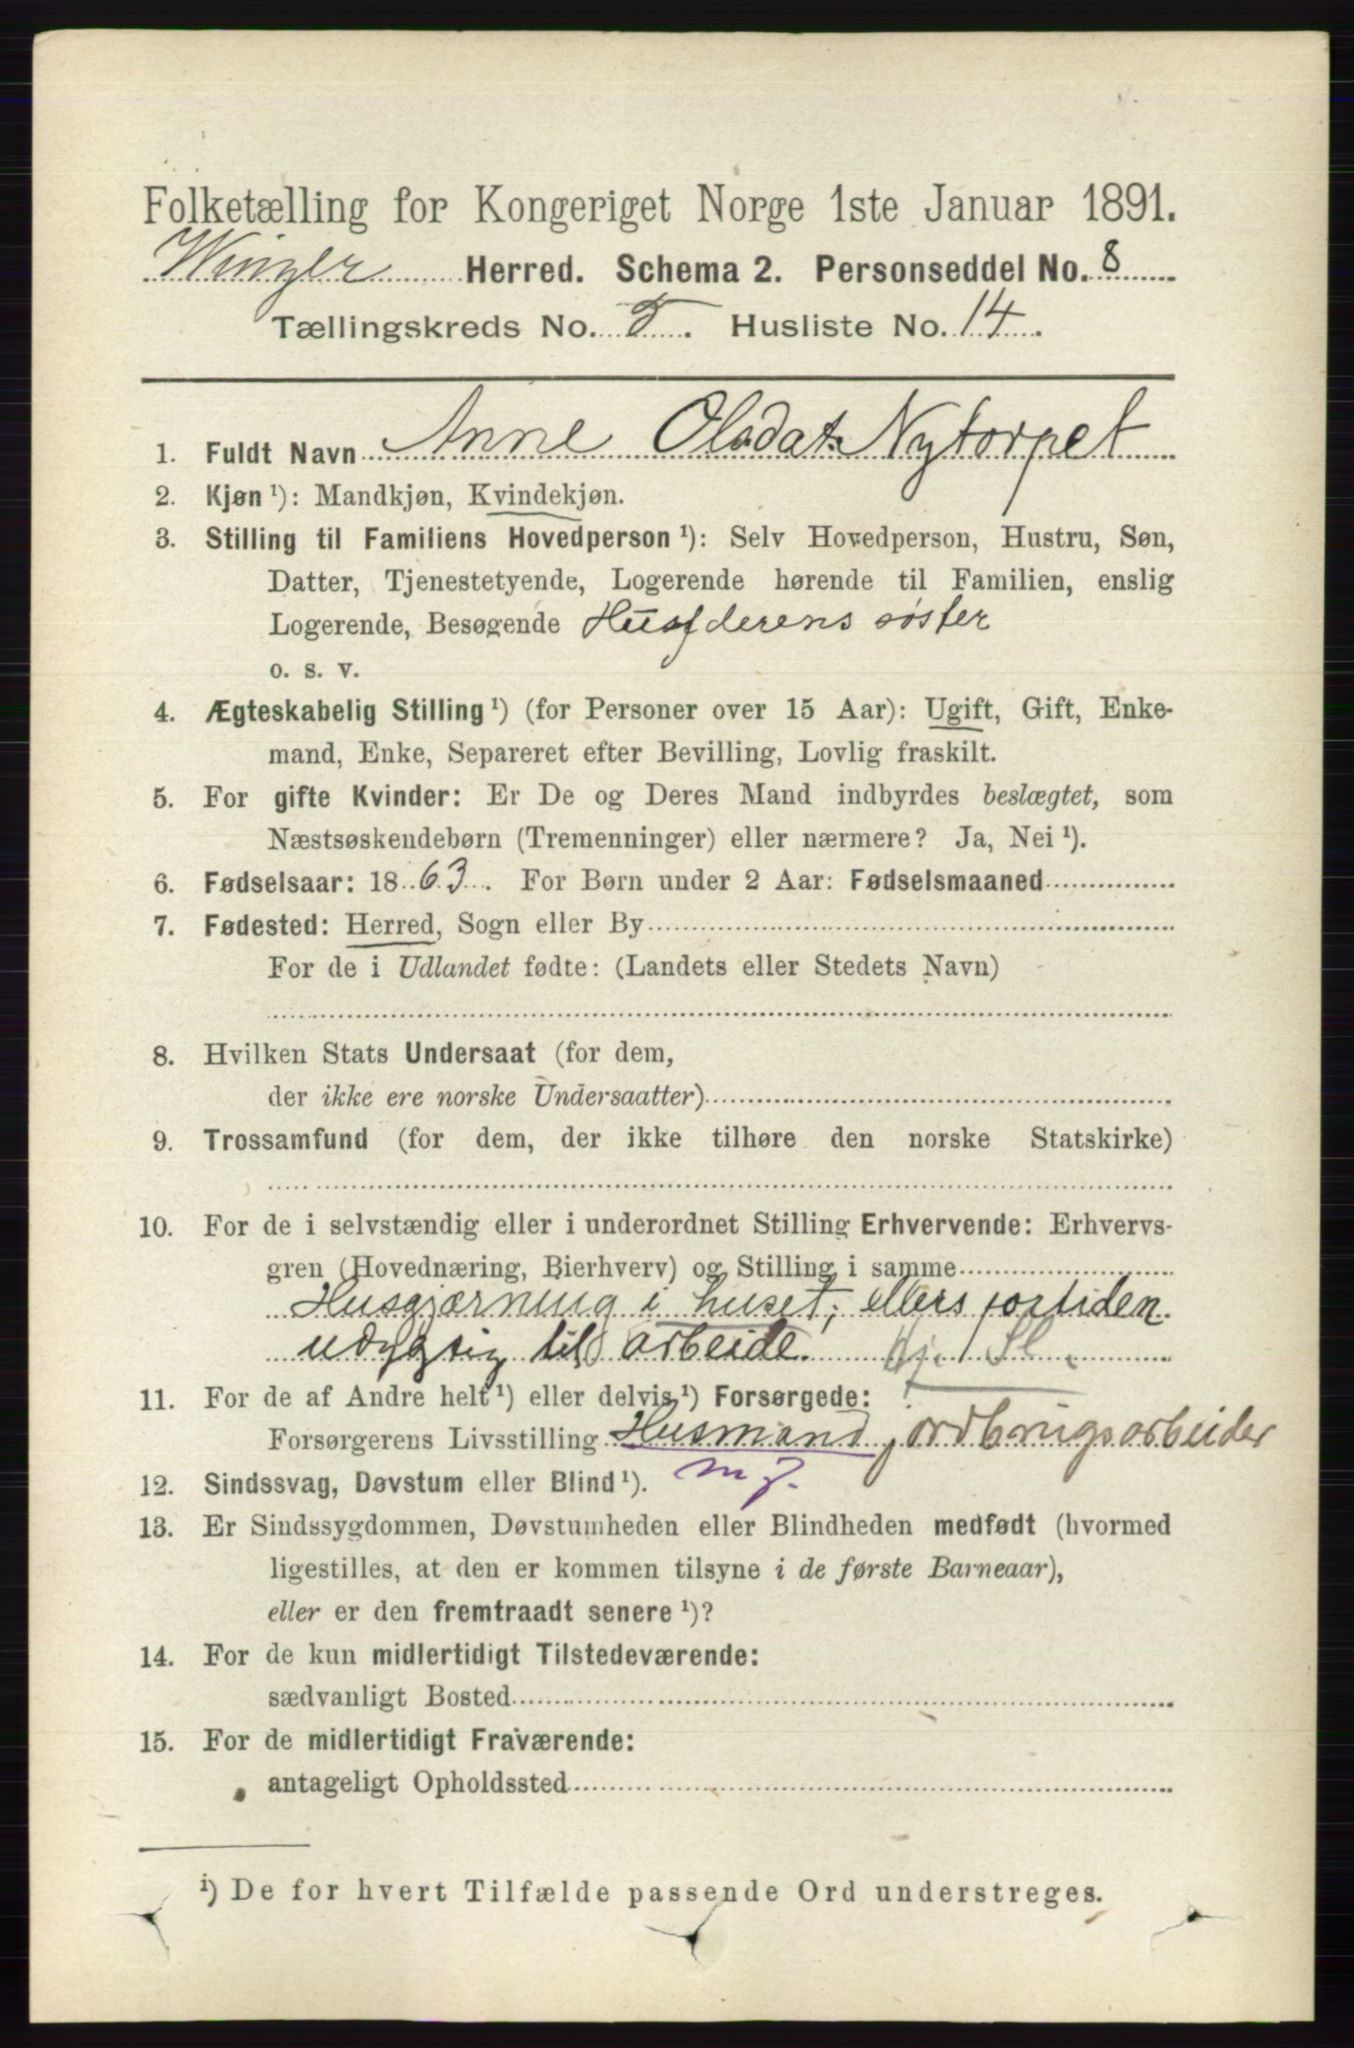 Folketælling for Kongeriget Norge 1ste Januar 1891.
Winger Herred. Schema 2. Personseddel No. 8
Tællingskreds No. 5. Husliste No. 14.
1. Fuldt Navn Anne Olsdat: Nytorpet
2. Kjøn ¹): Mandkjøn, Kvindekjøn.
3. Stilling til Familiens Hovedperson ¹): Selv Hovedperson, Hustru, Søn,
Datter, Tjenestetyende, Logerende hørende til Familien, enslig
Logerende, Besøgende Husfderens søster
o. s. v.
4. Ægteskabelig Stilling ¹) (for Personer over 15 Aar): Ugift, Gift, Enke-
mand, Enke, Separeret efter Bevilling, Lovlig fraskilt.
5. For gifte Kvinder: Er De og Deres Mand indbyrdes beslægtet, som
Næstsøskendebørn (Tremenninger) eller nærmere? Ja, Nei ¹).
6. Fødselsaar: 1863. For Børn under 2 Aar: Fødselsmaaned
7. Fødested: Herred, Sogn eller By
For de i Udlandet fødte: (Landets eller Stedets Navn)
8. Hvilken Stats Undersaat (for dem,
der ikke ere norske Undersaatter)
9. Trossamfund (for dem, der ikke tilhøre den norske Statskirke)
10. For de i selvstændig eller i underordnet Stilling Erhvervende: Erhvervs-
gren (Hovednæring, Bierhverv) og Stilling i samme
Husgjærning i huset; ellers fortiden
udygtig til arbeide.
11. For de af Andre helt ¹) eller delvis ¹) Forsørgede:
Forsørgerens Livsstilling Husmand, jordbrugsarbeider
12. Sindssvag, Døvstum eller Blind ¹). m j.
13. Er Sindssygdommen, Døvstumheden eller Blindheden medfødt (hvormed
ligestilles, at den er kommen tilsyne i de første Barneaar),
eller er den fremtraadt senere ¹)?
14. For de kun midlertidigt Tilstedeværende:
sædvanligt Bosted
15. For de midlertidigt Fraværende:
antageligt Opholdssted
¹) De for hvert Tilfælde passende Ord understreges.